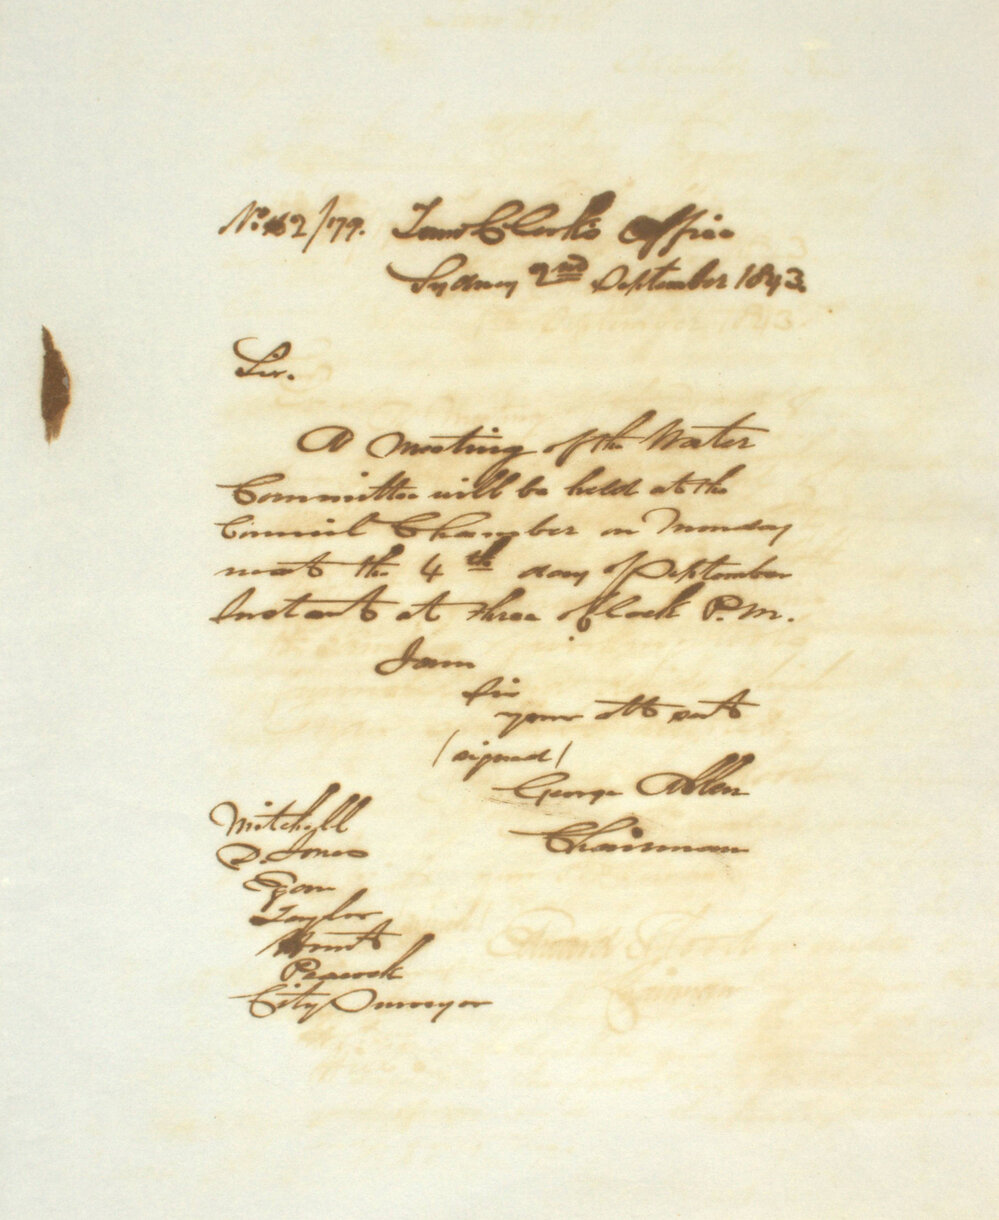 No. 162/79. Town Clerk's Office
Sydney 2nd September 1843.
Sir.
A Meeting of the Water
Committee will be held at the
Council Chamber on Monday
next the 4th day of September
Instant at three o'Clock P.M.
I am
Sir
your obt servt
(signed)
George Allen
Chairman
Mitchell
D. Jones
Egan
Taylor
Hunt
Peacock
City Surveyor